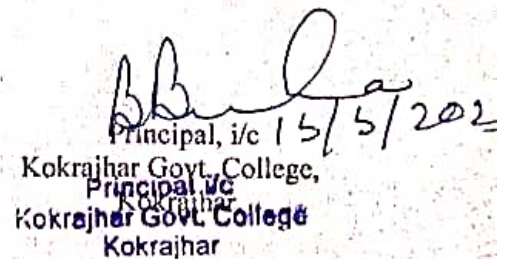 Principal, i/c 15/5/202
Kokrajhar Govt. College,
Kokrajhar
Principal i/c
Kokrajhar Govt. College
Kokrajhar